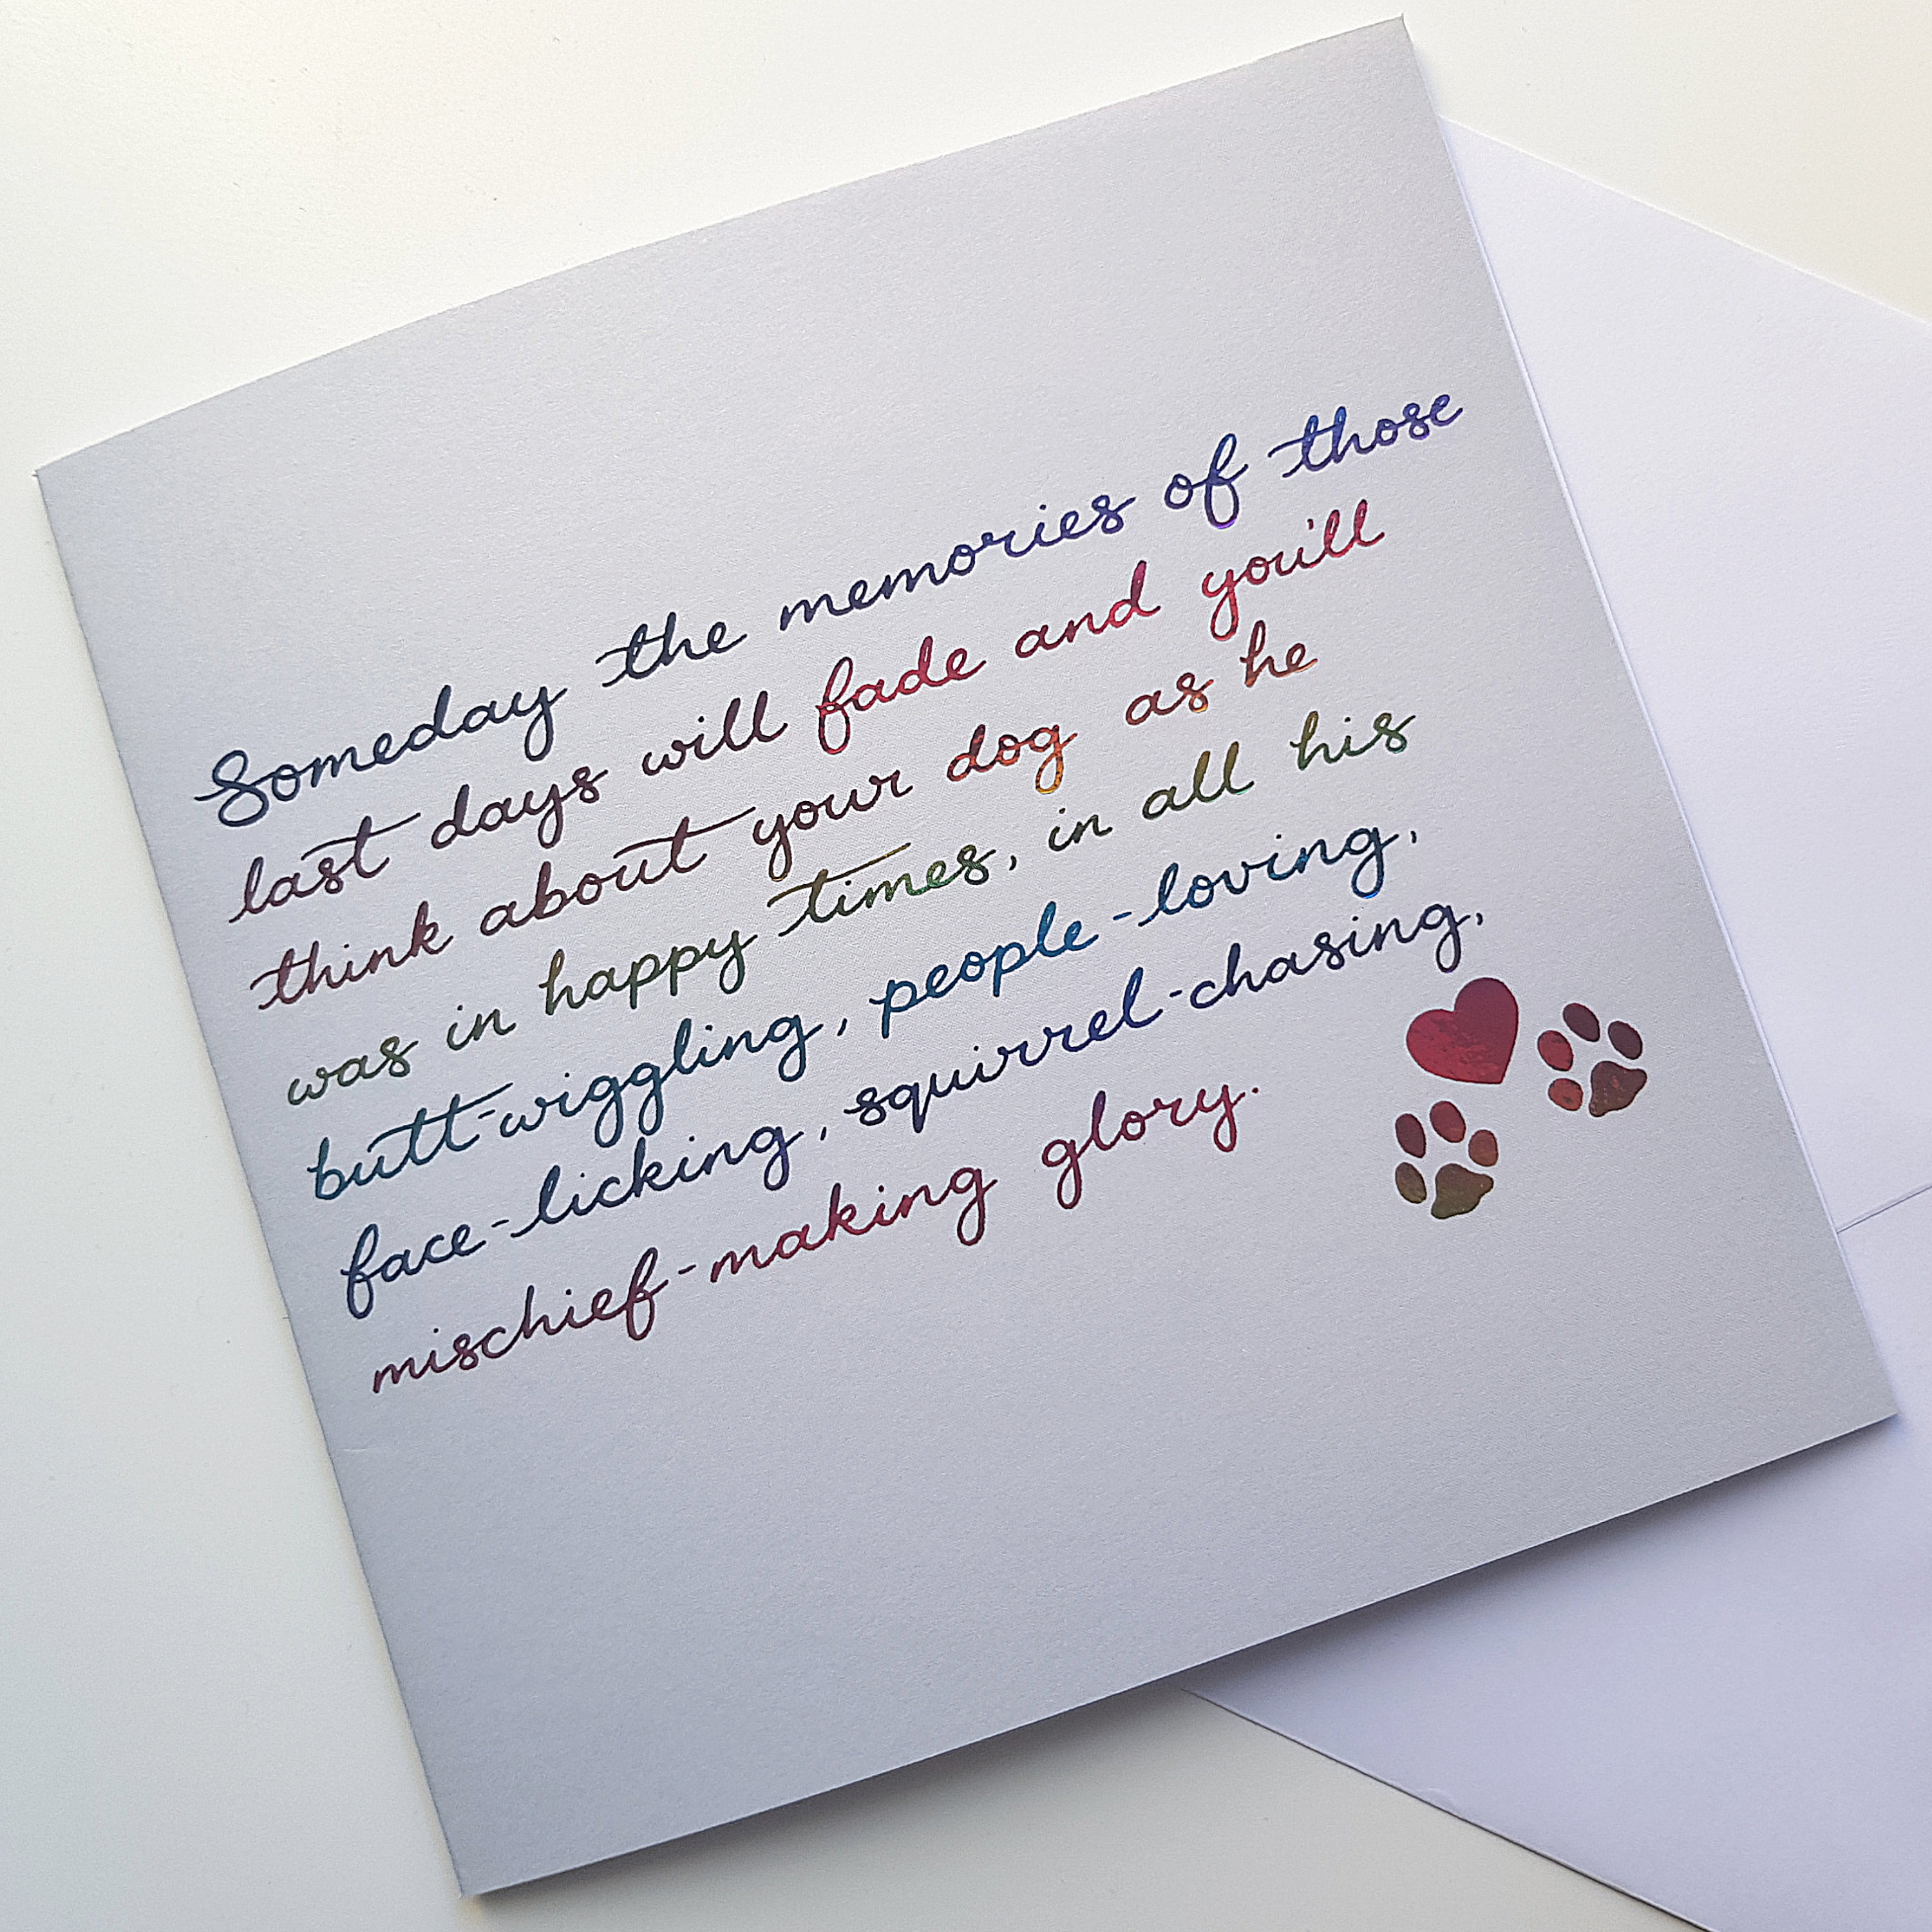 Someday the memories of those
last days will fade and you'll
think about your dog as he
was in happy times, in all his
butt-wiggling, people-loving,
face-licking, squirrel-chasing,
mischief-making glory.